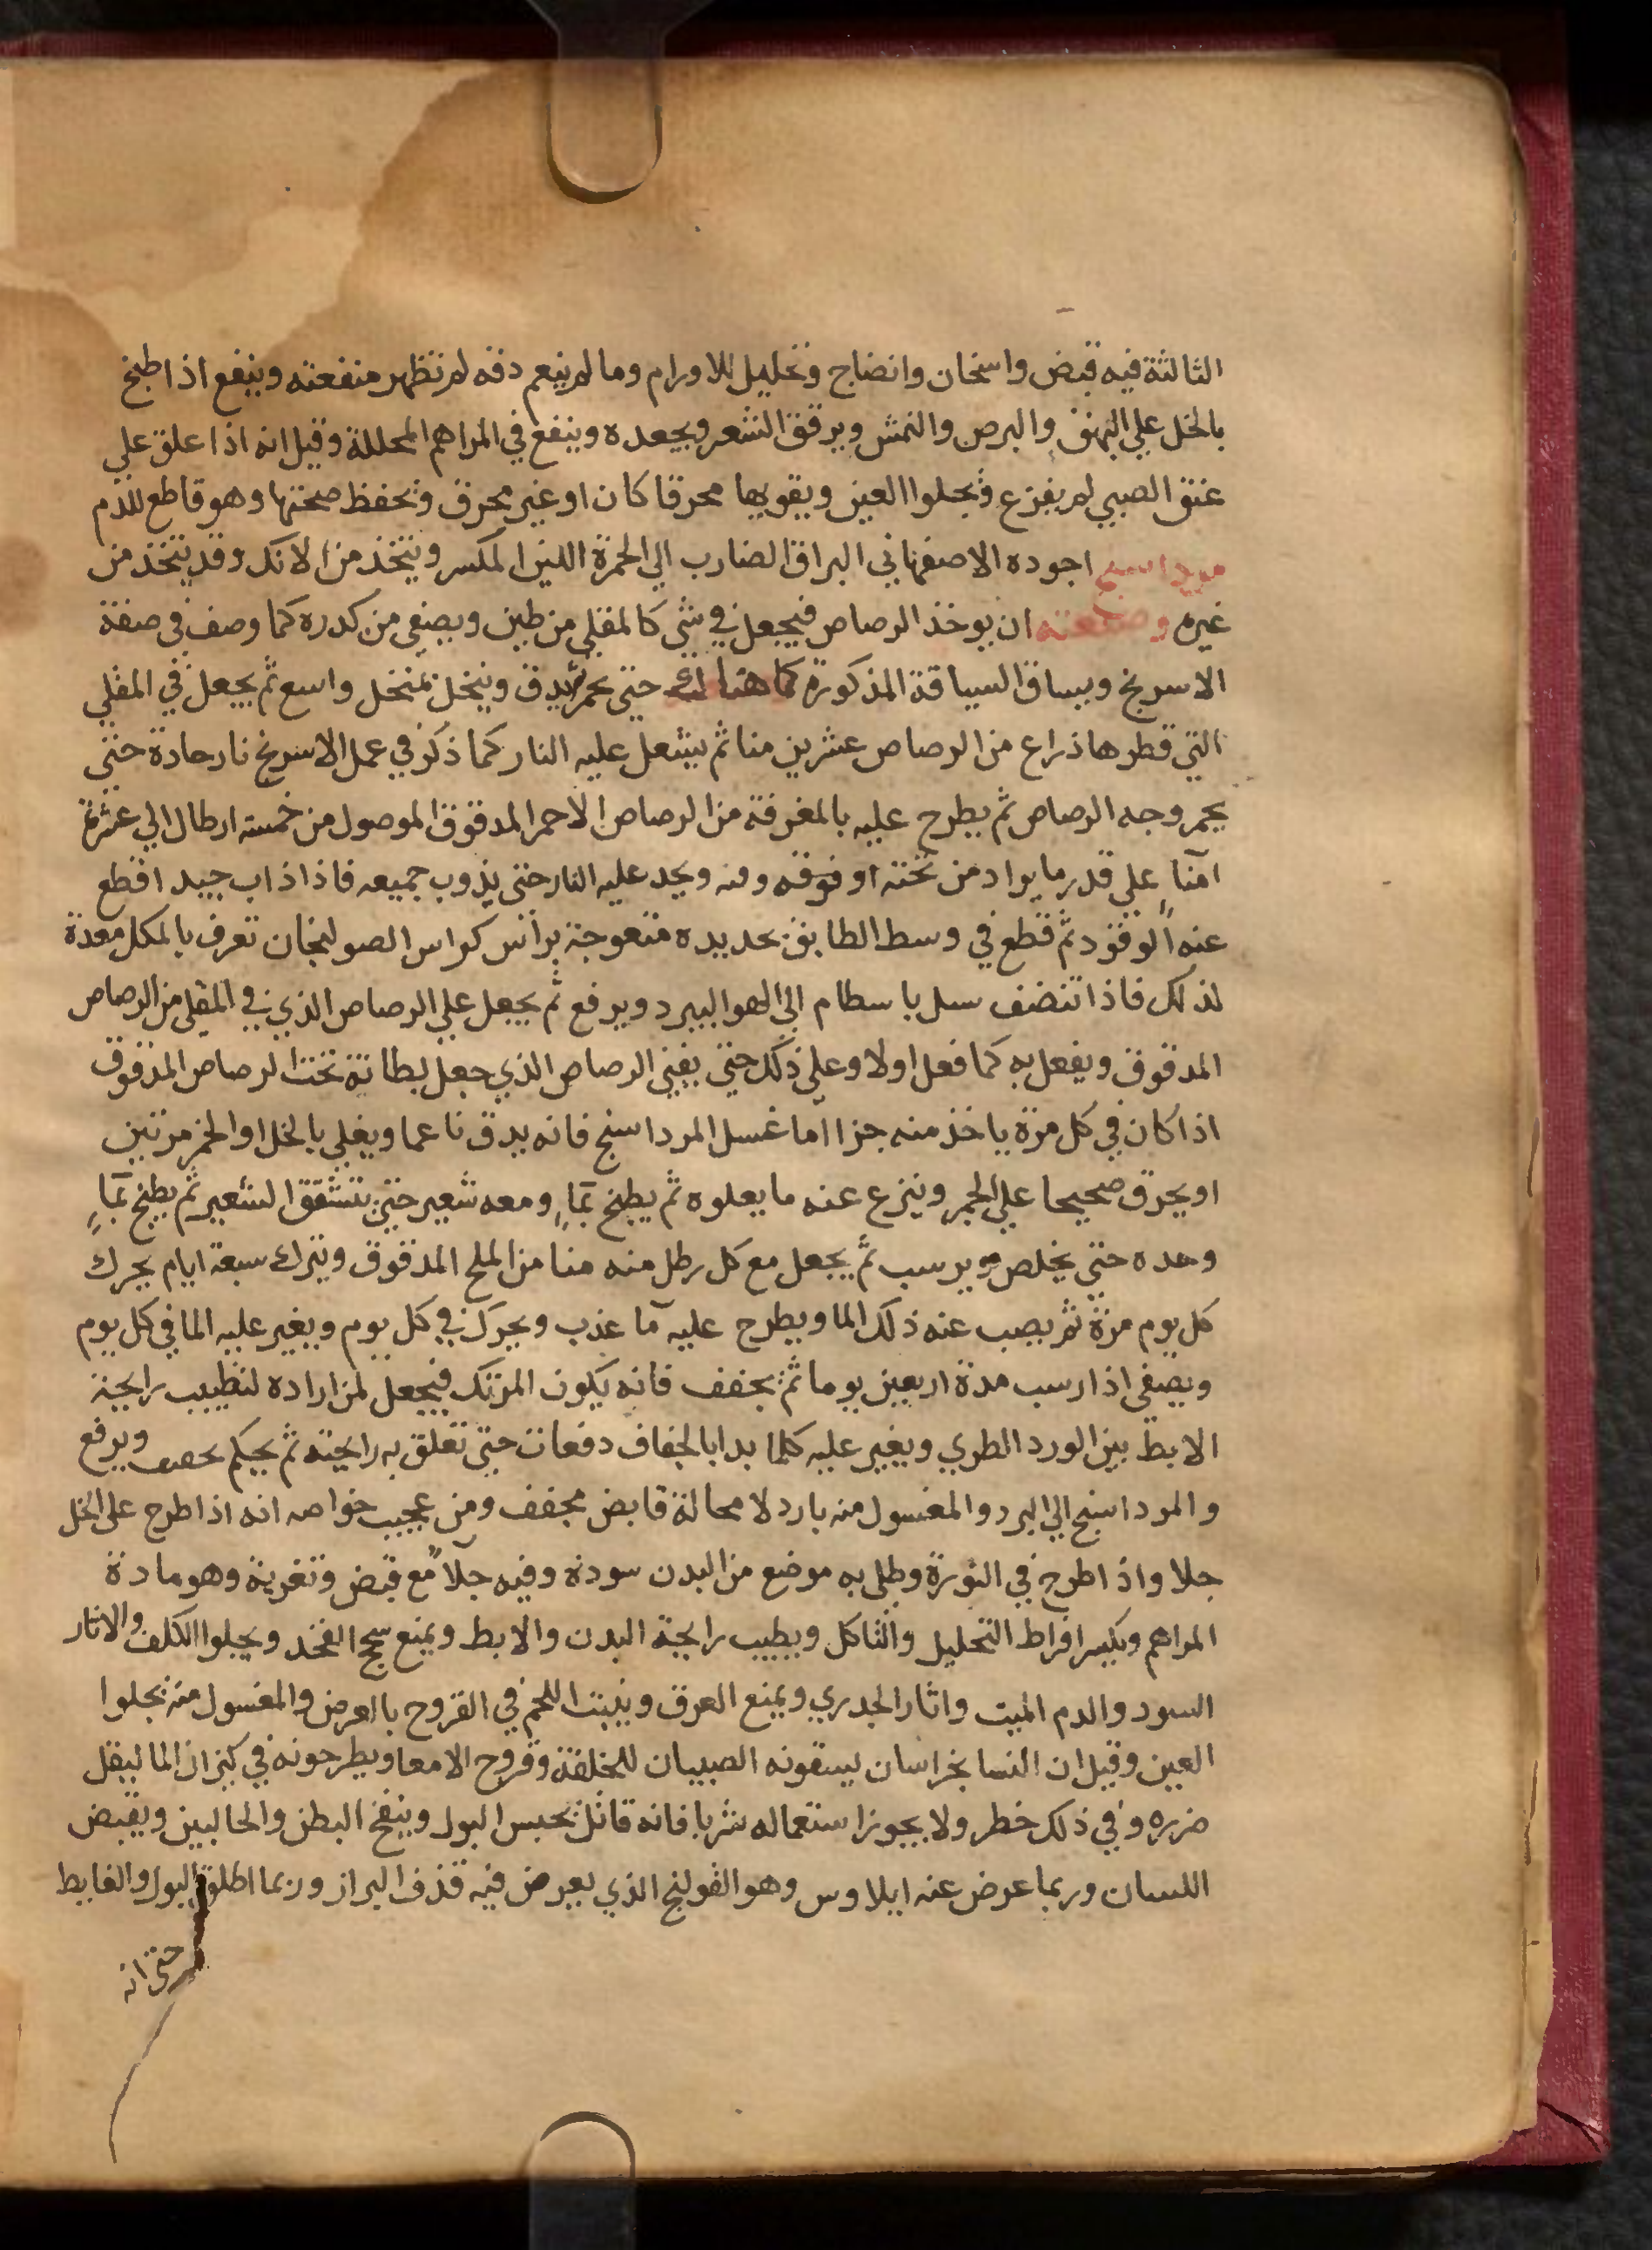 الثالثة فيه قبض واسخان وانضاج وتحليل للاورام وما لم ينعم دقه لم تظهر منفعته وينفع اذا طبخ
بالخل علي البهق والبرص والنمش ويرقق الشعر ويجعده وينفع في المراهم المحللة وقيل انه اذا علق علي
عنق الصبي لم يفزع ويجلوا العين ويقويها محرقا كان او غير محرق ويحفظ صحتها وهو قاطع للدم
مرداسنج اجوده الاصفهاني البراق الضارب الي الحمرة اللين المكسر ويتخذ من الانك وقد يتخذ من
غيره وصنعته ان يوخذ الرصاص فيجعل في شي كالمقلي من طين ويصفي من كدره كما وصف في صفة
الاسرنج ويساق السياقة المذكورة كما هناك حتي يحمر ثم يدق وينخل بمنخل واسع ثم يجعل في المقلي
التي قطرها ذراع من الرصاص عشرين منا ثم يشعل عليه النار كما ذكر في عمل الاسرنج نار حادة حتي
يحمر وجه الرصاص ثم يطرح عليه بالمغرفة من الرصاص الاحمر المدقوق الموصول من خمسة ارطال الي عشرة
امنا علي قدر ما يراد من تخنته او فوقه ويحد عليه النار حتي يذوب جميعه فاذا ذاب جيد اقطع
عنه الوقود ثم قطع في وسط الطابق بحديده متعوجة براس كراس الصولنجان تعرف بالمكل معدة
لذلك فاذا تنضف سل باسطام الي الهوا ليبرد ويرفع ثم يجعل علي الرصاص الذي في المقلي من الرصاص
المدقوق ويفعل به كما فعل اولا وعلي ذلك حتي يفني الرصاص الذي جعل بطانة تحت الرصاص المدقوق
اذا كان في كل مرة ياخذ منه جزا اما غسل المرداسنج فانه يدق ناعما ويغلي بالخل او الخمر مرتين
او يحرق صحيحا علي الجمر وينزع عنه ما يعلوه ثم يطبخ بمآ ومعه شعير حتي يتشقق الشعير ثم يطبخ بمآ
وحده حتي يخلص ويرسب ثم يجعل مع كل رطل منه منا من الملح المدقوق ويترك سبعة ايام يحرك
كل يوم مرة ثم يصب عنه ذلك الما ويطرح عليه مآ عذب ويحرك في كل يوم ويغير عليه الما في كل يوم
ويصفي اذا رسب مدة اربعين يوما ثم يجفف فانه يكون المرتك فيجعل لمن اراده لتطييب رايحة
الابط بين الورد الطري ويغير عليه كلما بدا بالجفاف دفعات حتي تعلق به رايحته ثم يحكم ويرفع
والمرداسنج الي البرد والمغسول منه بارد لا محالة قابض مجفف ومن عجيب خواصه انه اذا طرح علي الخل
حلا واذا طرح في النورة وطلي به موضع من البدن سوده وفيه جلآ مع قبض وتغرية وهو مادة
المراهم ويكسر افراط التحليل والتاكل ويطيب رايحة البدن والابط ويمنع سحج الفخد ويجلوا الكلف والاثار
السود والدم الميت واثار الجدري ويمنع العرق وينبت اللحم في القروح بالعرض والمغسول منه يجلوا
العين وقيل ان النسا بخراسان يسقونه الصبيان للخلفة وقروح الامعا ويطرحونه في كيزان الما ليقل
ضرره وفي ذلك خطر ولا يجوز استعماله شربا فانه قاتل يحبس البول وينفخ البطن والحالبين ويقبض
اللسان وربما عرض عنه ايلاوس وهو القولنج الذي يعرض فيه قذف البراز وربما اطلق البول والغايط
حتي انه